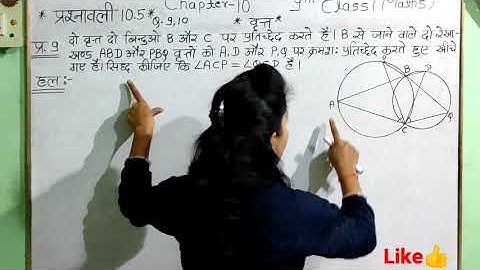 * प्रश्नावली 10.5 Chapter-10 9th Class (Maths)
Q. 9,10 * वृत्त *
प्र. 9 दो वृत्त दो बिन्दुओं B और C पर प्रतिच्छेद करते हैं। B से जाने वाले दो रेखा-
खण्ड ABD और PBQ वृत्तों को A,D और P,Q पर क्रमशः प्रतिच्छेद करते हुए खींचे
गए हैं। सिद्ध कीजिए कि ∠ACP = ∠QCD है।
हल :-
B
D
A
Q
C
Like